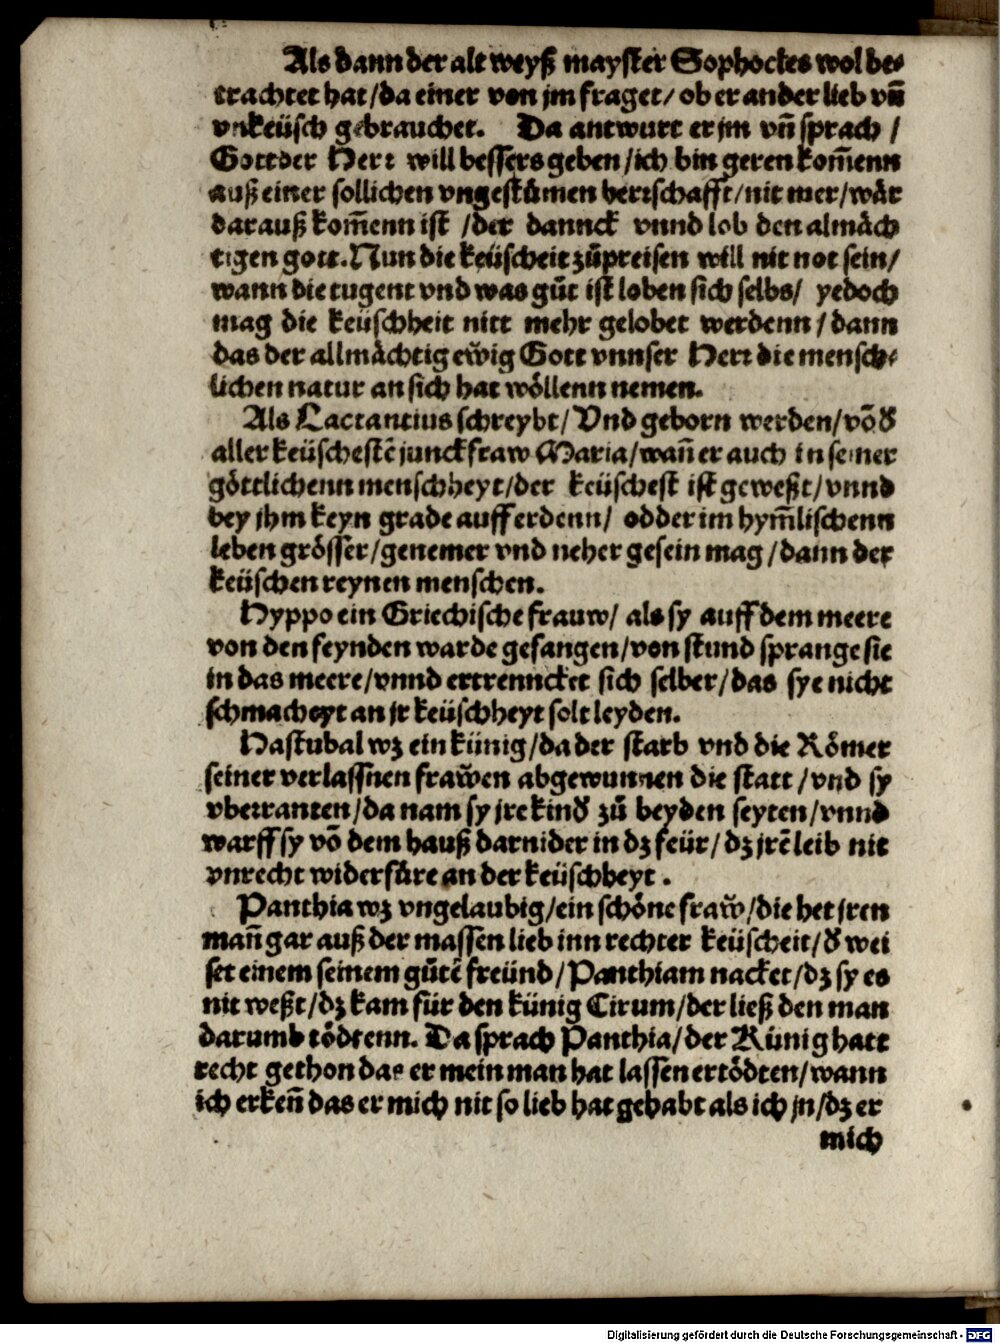 Als dann der alt weyß mayster Sophocles wol be⸗
trachtet hat / da einer von jm fraget / ob er an der lieb vñ
vnkeüsch gebrauchet. Da antwurt er jm vñ sprach /
Gott der Herr will bessers geben / ich bin geren kom̃enn
auß einer sollichen vngestůmen herrschafft / nit mer / wår
darauß kom̃enn ist / der danck vnnd lob den almåch
tigen gott. Nun die keüscheit zůpreisen will nit not sein /
wann die tugent vnd was gůt ist loben sich selbs / yedoch
mag die keüschheit nitt mehr gelobet werdenn / dann
das der allmåchtig ewig Gott vnnser Herr die mensch⸗
lichen natur an sich hat wöllenn nemen.
Als Lactantius schreybt / Vnd geborn werden / võ d̕
aller keüschestẽ junckfraw Maria / wañ er auch in seiner
göttlichenn menschheyt / der keüschest ist geweßt / vnnd
bey jhm keyn grade auff erdenn / odder im hym̃lischenn
leben grösser / genemer vnd neher gesein mag / dann der
keüschen reynen menschen.
Hyppo ein Griechische frauw / als sy auff dem meere
von den feynden warde gefangen / von stund sprange sie
in das meere / vnnd ertrenncket sich selber / das sye nicht
schmacheyt an jr keüschheyt solt leyden.
Hastubal wz ein künig / da der starb vnd die Römer
seiner verlassnen frawen abgewunnen die statt / vnd sy
vberranten / da nam sy jre kind̕ zů beyden seyten / vnnd
warff sy võ dem hauß darnider in dz feür / dz jrẽ leib nit
vnrecht widerfüre an der keüschheyt.
Panthia wz vngelaubig / ein schöne fraw / die het jren
mañ gar auß der massen lieb inn rechter keüscheit / d̕ wei
set einem seinem gůtẽ freünd / Panthiam nacket / dz sy es
nit weßt / dz kam für den künig Cirum / der ließ den man
darumb tödtenn. Da sprach Panthia / der Künig hatt
recht gethon das er mein man hat lassen ertödten / wann
ich erkeñ das er mich nit so lieb hat gehabt als ich jn / dz er
mich
Digitalisierung gefördert durch die Deutsche Forschungsgemeinschaft - DFG